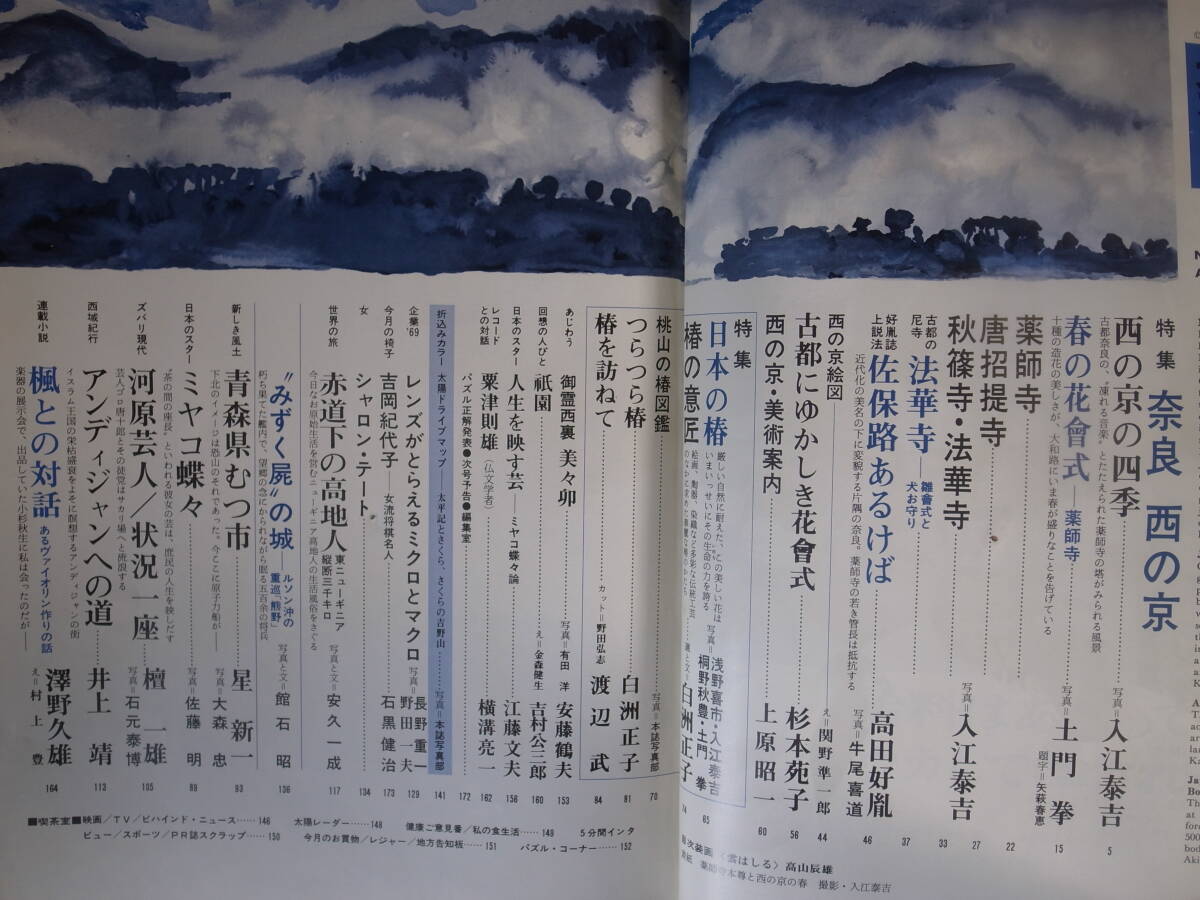 特集 奈良 西の京
西の京の四季 写真=入江泰吉 5
古都奈良の、“凍れる音楽”とたたえられた薬師寺の塔がみられる風景
春の花會式──薬師寺 写真=土門 拳 題字=矢萩春恵 15
十種の造花の美しさが、大和路にいま春が盛りなことを告げている
薬師寺 22
唐招提寺 27
秋篠寺・法華寺 写真=入江泰吉 33
古都の尼寺 法華寺 雛會式と犬お守り 37
好胤誌上説法 佐保路あるけば 高田好胤 写真=牛尾喜道 46
近代化の美名の下に変貌する片隅の奈良。薬師寺の若き管長は抵抗する
西の京絵図 え=関野準一郎 44
古都にゆかしき花會式 杉本苑子 56
西の京・美術案内 上原昭一 60
特集
日本の椿 写真=浅野喜市・入江泰吉 桐野秋豊・土門 拳 65
厳しい自然に耐えた、この美しい花は
いまいっせいにその生命の力を誇る
椿の意匠 白洲正子 74
絵画、陶器、染織など多彩な伝統工芸
桃山の椿図鑑 写真=本誌写真部 70
つらつら椿 白洲正子 81
椿を訪ねて カット=野田弘志 渡辺 武 84
あじわう 御霊西裏 美々卯 写真=有田 洋 安藤鶴夫 153
回想の人びと 祇園 え=金森健生 吉村公三郎 160
日本のスター 人生を映す芸──ミヤコ蝶々論 江藤文夫 156
レコードとの対話 粟津則雄(仏文学者) 横溝亮一 162
パズル正解発表●次号予告●編集室 172
折込みカラー 太陽ドライブマップ──太平記とさくら、さくらの吉野山 写真=本誌写真部 141
企業'69 レンズがとらえるミクロとマクロ 写真=長野重一 野田一夫 129
今月の椅子 吉岡紀代子──女流将棋名人 石黒健治 173
女 シャロン・テート 134
世界の旅 赤道下の高地人 東ニューギニア縦断三千キロ 写真と文=安久一成 117
今日なお原始生活を営むニューギニア高地人の生活風俗をさぐる
“みずく屍”の城──ルソン沖の重巡「熊野」 写真と文=館石 昭 136
朽ち果てた艦内で、望郷の念にかられながら眠る五百余の将兵
新しき風土 青森県むつ市 星 新一 写真=大森 忠 93
下北のイメージは恐山のそれであった。今ここに原子力船が──
日本のスター ミヤコ蝶々 写真=佐藤 明 89
“茶の間の座長”といわれる彼女の芸は、庶民の人生を映しだす
ズバリ現代 河原芸人／状況一座 檀 一雄 写真=石元泰博 105
芸人ゴロ唐十郎とその徒党はサカリ場へと流浪する
西域紀行 アンディジャンへの道 井上 靖 113
イスラム王国の栄枯盛衰をよそに瞑想するアンディジャンの街
連載小説 楓との対話 あるヴァイオリン作りの話 澤野久雄 え=村上 豊 164
楽器の展示会で、出品していた小杉秋生に私は会ったのだが──
■喫茶室■映画／TV／ビハインド・ニュース……146 太陽レーダー……148 健康ご意見番／私の食生活……149 5分間インタ
ビュー／スポーツ／PR誌スクラップ……150 今月のお買物／レジャー／地方告知板……151 パズル・コーナー……152
目次装画〈雲はしる〉高山辰雄
表紙 薬師寺本尊と西の京の春 撮影・入江泰吉